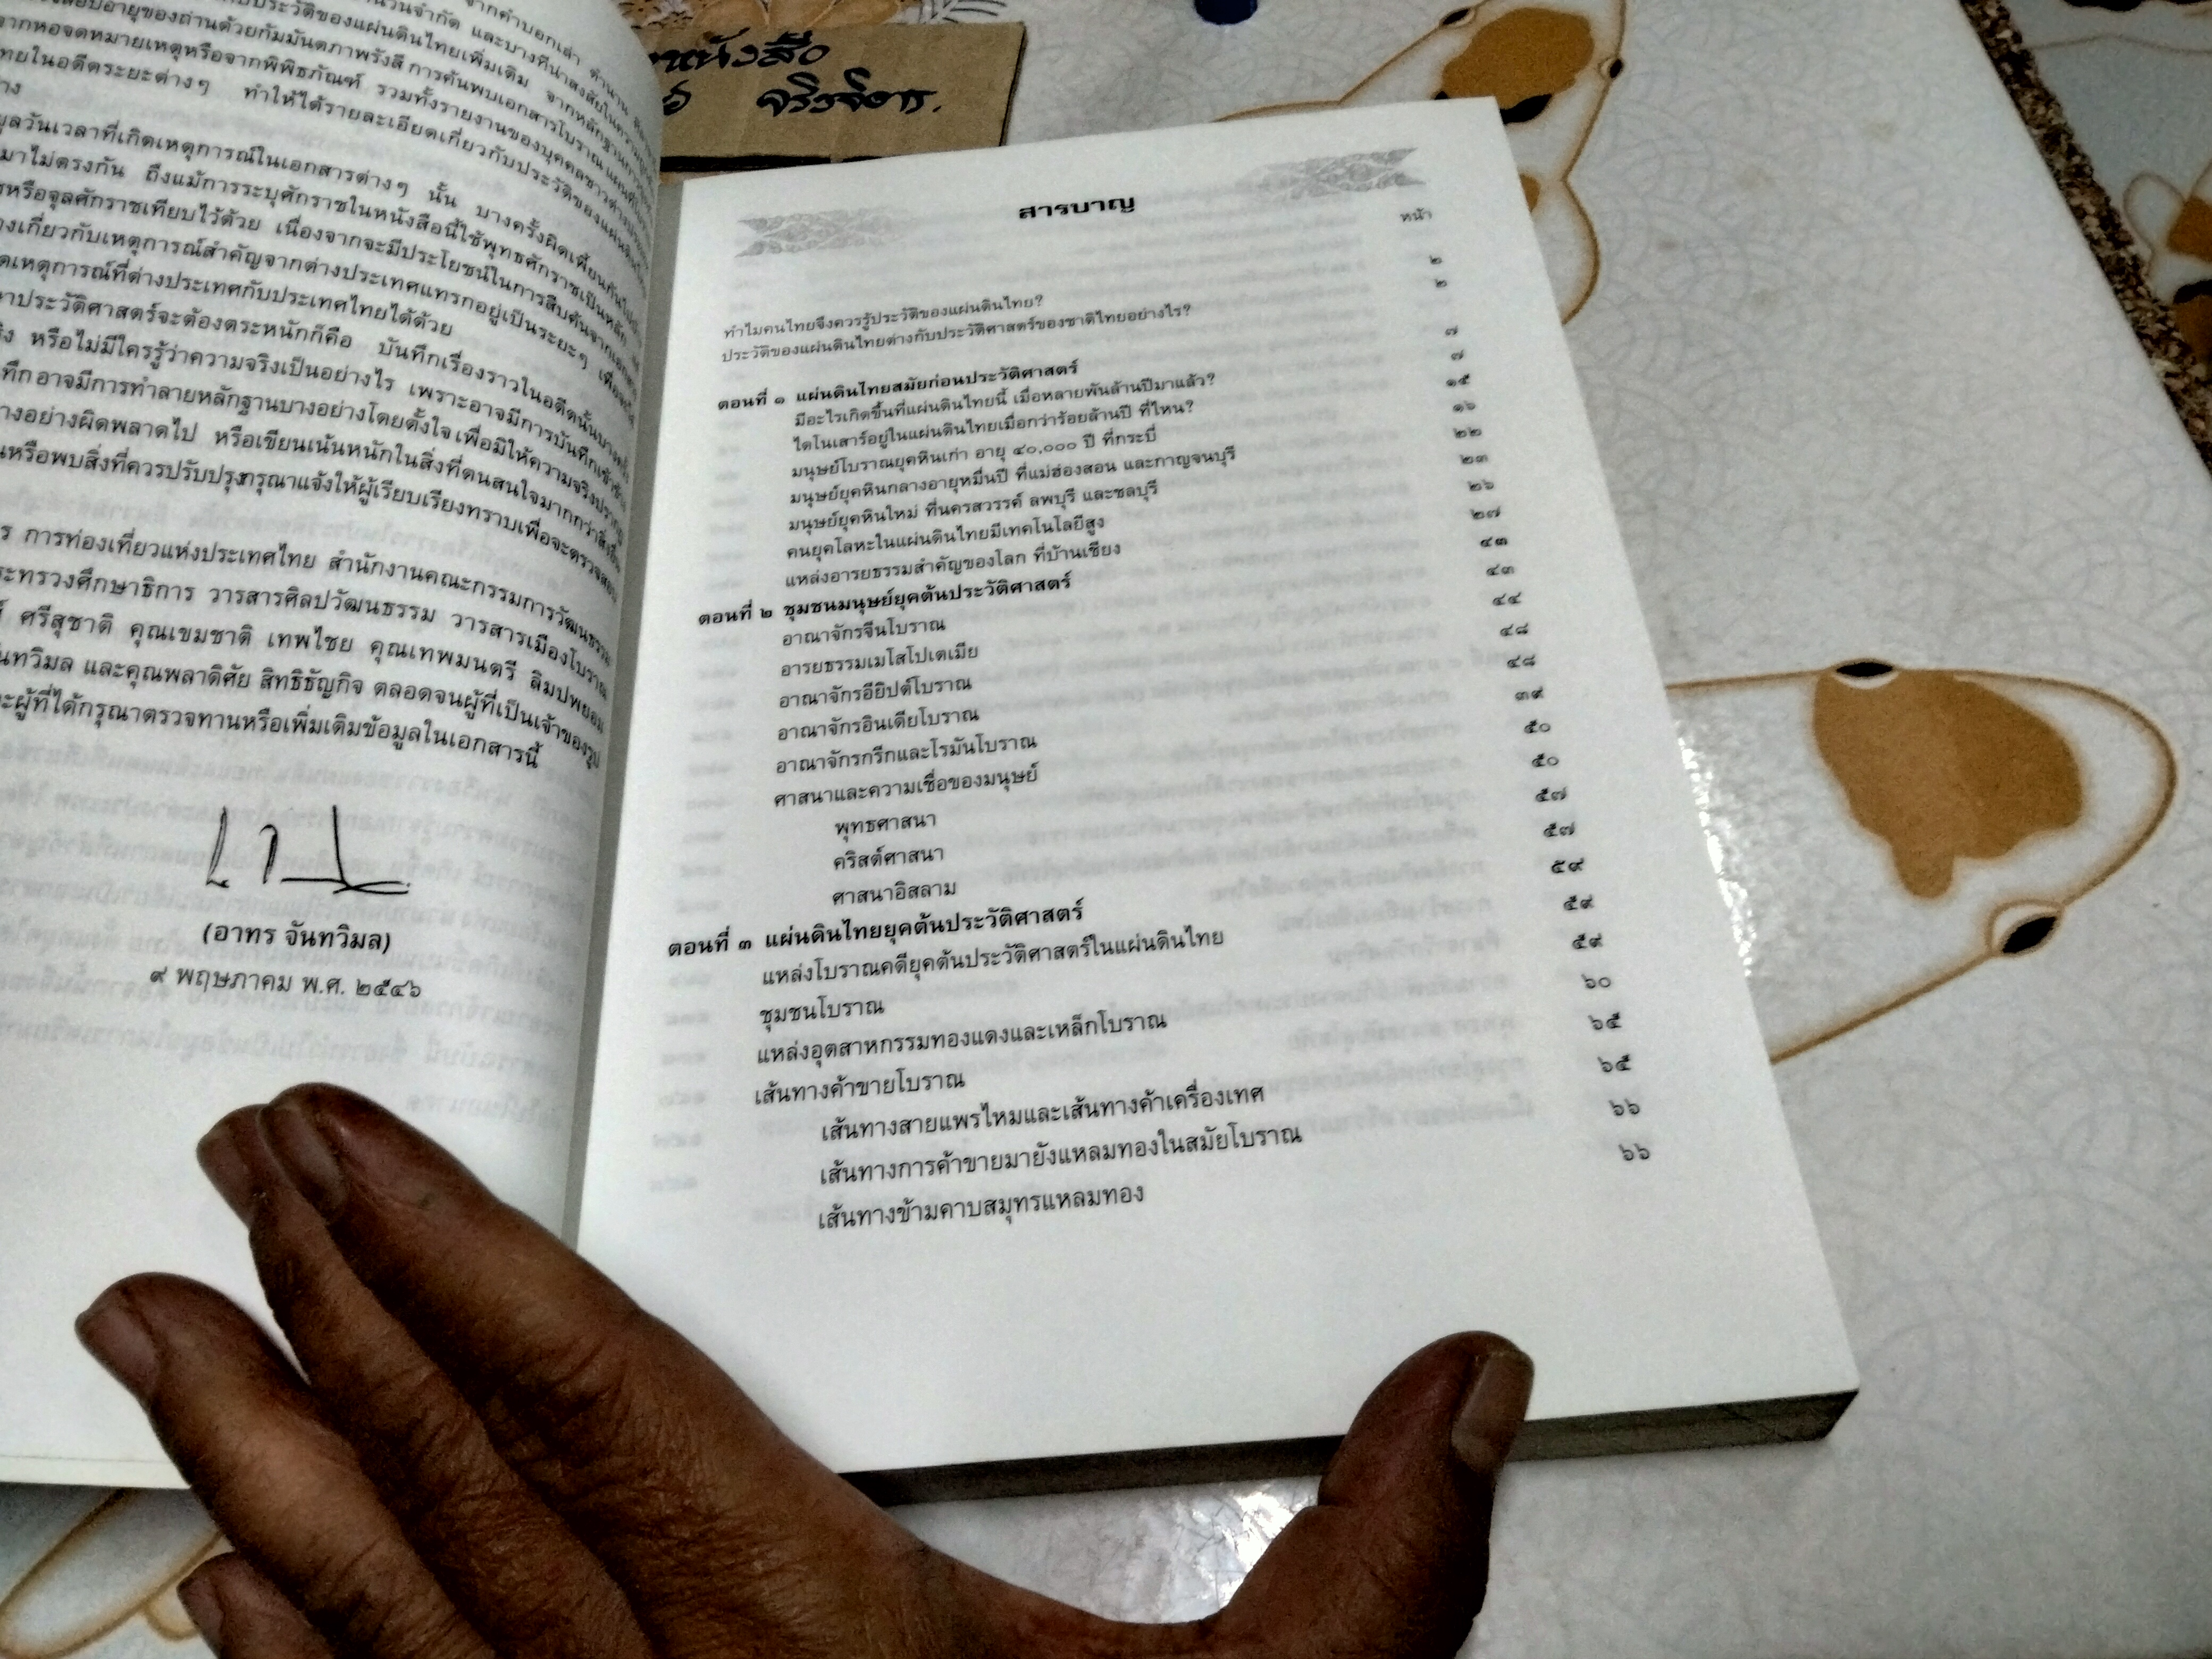 จากคำบอกเล่า ตำนาน
จำนวนจำกัด และบางทีน่าสงสัยในความ
ประวัติของแผ่นดินไทยเพิ่มเติม จากหลักฐานการ
อายุของถ่านด้วยกัมมันตภาพรังสี การค้นพบเอกสารโบราณ แผนที่โบราณ
จากหอจดหมายเหตุหรือจากพิพิธภัณฑ์ รวมทั้งรายงานของบุคคลชาวต่างประเทศ
ไทยในอดีตระยะต่างๆ ทำให้ได้รายละเอียดเกี่ยวกับประวัติของแผ่นดิน
วันเวลาที่เกิดเหตุการณ์ในเอกสารต่างๆ นั้น บางครั้งผิดเพี้ยนกันไปบ้าง
มาไม่ตรงกัน ถึงแม้การระบุศักราชในหนังสือนี้ใช้พุทธศักราชเป็นหลัก
หรือจุลศักราชเทียบไว้ด้วย เนื่องจากจะมีประโยชน์ในการสืบค้นจากเอกสาร
เกี่ยวกับเหตุการณ์สำคัญจากต่างประเทศแทรกอยู่เป็นระยะๆ เพื่อ
เหตุการณ์ที่ต่างประเทศกับประเทศไทยได้ด้วย
ประวัติศาสตร์จะต้องตระหนักก็คือ บันทึกเรื่องราวในอดีตนั้นบางครั้ง
หรือไม่มีใครรู้ว่าความจริงเป็นอย่างไร เพราะอาจมีการบันทึกเข้าข้าง
อาจมีการทำลายหลักฐานบางอย่างโดยตั้งใจ เพื่อมิให้ความจริงปรากฏ
อย่างผิดพลาดไป หรือเขียนเน้นหนักในสิ่งที่ตนสนใจมากกว่าสิ่งอื่น
หรือพบสิ่งที่ควรปรับปรุงกรุณาแจ้งให้ผู้เรียบเรียงทราบเพื่อจะตรวจสอบ
การท่องเที่ยวแห่งประเทศไทย สำนักงานคณะกรรมการวัฒนธรรม
กระทรวงศึกษาธิการ วารสารศิลปวัฒนธรรม วารสารเมืองโบราณ
ศรีสุชาติ คุณเขมชาติ เทพไชย คุณเทพมนตรี ลิมปพยอม
จันทวิมล และคุณพลาดิศัย สิทธิธัญกิจ ตลอดจนผู้ที่เป็นเจ้าของรูป
ผู้ที่ได้กรุณาตรวจทานหรือเพิ่มเติมข้อมูลในเอกสารนี้
(อาทร จันทวิมล)
๙ พฤษภาคม พ.ศ. ๒๕๔๖
หนังสือ
สารบาญ
หน้า
ทำไมคนไทยจึงควรรู้ประวัติของแผ่นดินไทย? ๒
ประวัติของแผ่นดินไทยต่างกับประวัติศาสตร์ของชาติไทยอย่างไร? ๒
ตอนที่ ๑ แผ่นดินไทยสมัยก่อนประวัติศาสตร์ ๗
มีอะไรเกิดขึ้นที่แผ่นดินไทยนี้ เมื่อหลายพันล้านปีมาแล้ว? ๗
ไดโนเสาร์อยู่ในแผ่นดินไทยเมื่อกว่าร้อยล้านปี ที่ไหน? ๑๕
มนุษย์โบราณยุคหินเก่า อายุ ๔๐,๐๐๐ ปี ที่กระบี่ ๑๖
มนุษย์ยุคหินกลางอายุหมื่นปี ที่แม่ฮ่องสอน และกาญจนบุรี ๒๒
มนุษย์ยุคหินใหม่ ที่นครสวรรค์ ลพบุรี และชลบุรี ๒๓
คนยุคโลหะในแผ่นดินไทยมีเทคโนโลยีสูง ๒๖
แหล่งอารยธรรมสำคัญของโลก ที่บ้านเชียง ๒๗
ตอนที่ ๒ ชุมชนมนุษย์ยุคต้นประวัติศาสตร์ ๔๓
อาณาจักรจีนโบราณ ๔๓
อารยธรรมเมโสโปเตเมีย ๔๔
อาณาจักรอียิปต์โบราณ ๔๘
อาณาจักรอินเดียโบราณ ๔๘
อาณาจักรกรีกและโรมันโบราณ ๓๙
ศาสนาและความเชื่อของมนุษย์ ๕๐
พุทธศาสนา ๕๐
คริสต์ศาสนา ๕๗
ศาสนาอิสลาม ๕๗
ตอนที่ ๓ แผ่นดินไทยยุคต้นประวัติศาสตร์ ๕๙
แหล่งโบราณคดียุคต้นประวัติศาสตร์ในแผ่นดินไทย ๕๙
ชุมชนโบราณ ๕๙
แหล่งอุตสาหกรรมทองแดงและเหล็กโบราณ ๖๐
เส้นทางค้าขายโบราณ ๖๕
เส้นทางสายแพรไหมและเส้นทางค้าเครื่องเทศ ๖๕
เส้นทางการค้าขายมายังแหลมทองในสมัยโบราณ ๖๖
เส้นทางข้ามคาบสมุทรแหลมทอง ๖๖